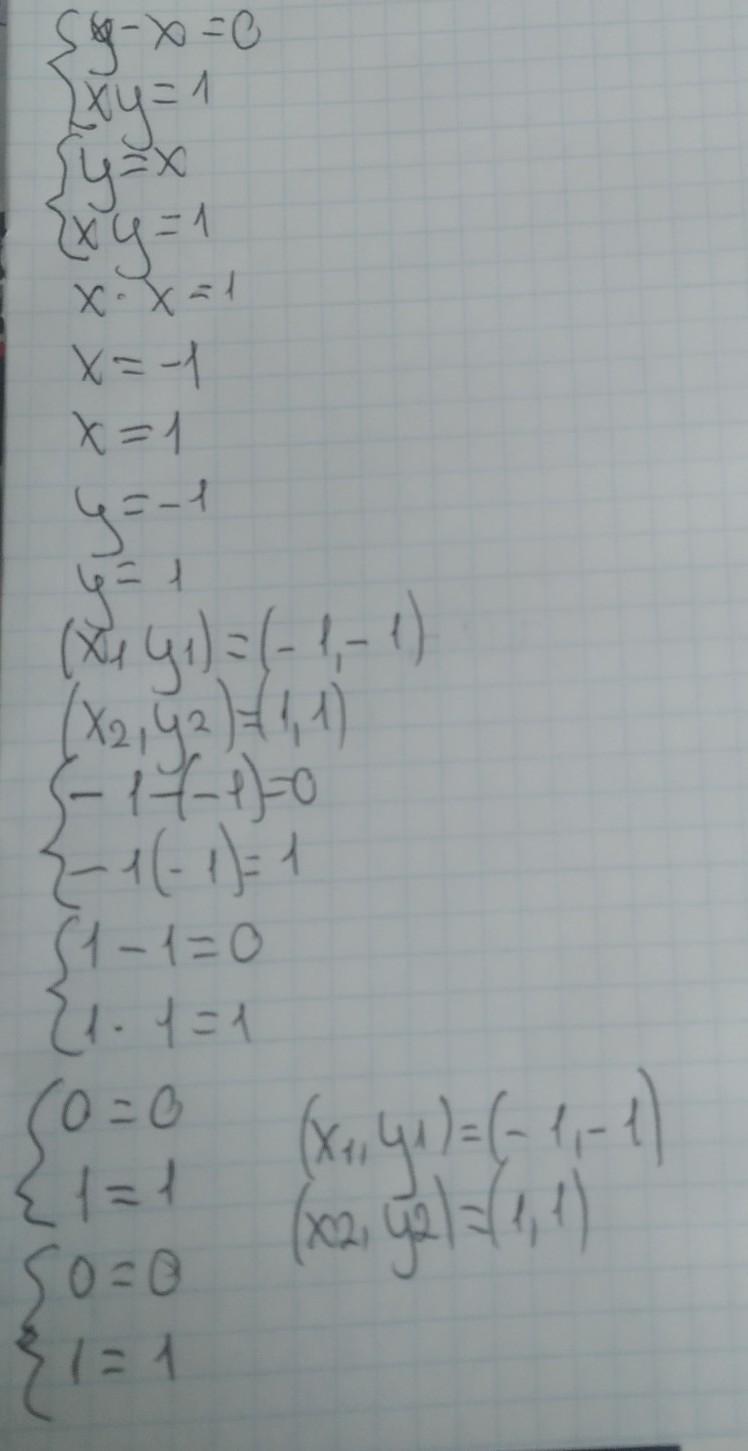 {y-x=0
{xy=1
{y=x
{xy=1
x·x=1
x=-1
x=1
y=-1
y=1
(x1 y1)=(-1,-1)
(x2,y2)=(1,1)
{-1-(-1)=0
{-1(-1)=1
{1-1=0
{1·1=1
{0=0
{1=1
{0=0
{1=1
(x1,y1)=(-1,-1)
(x2,y2)=(1,1)